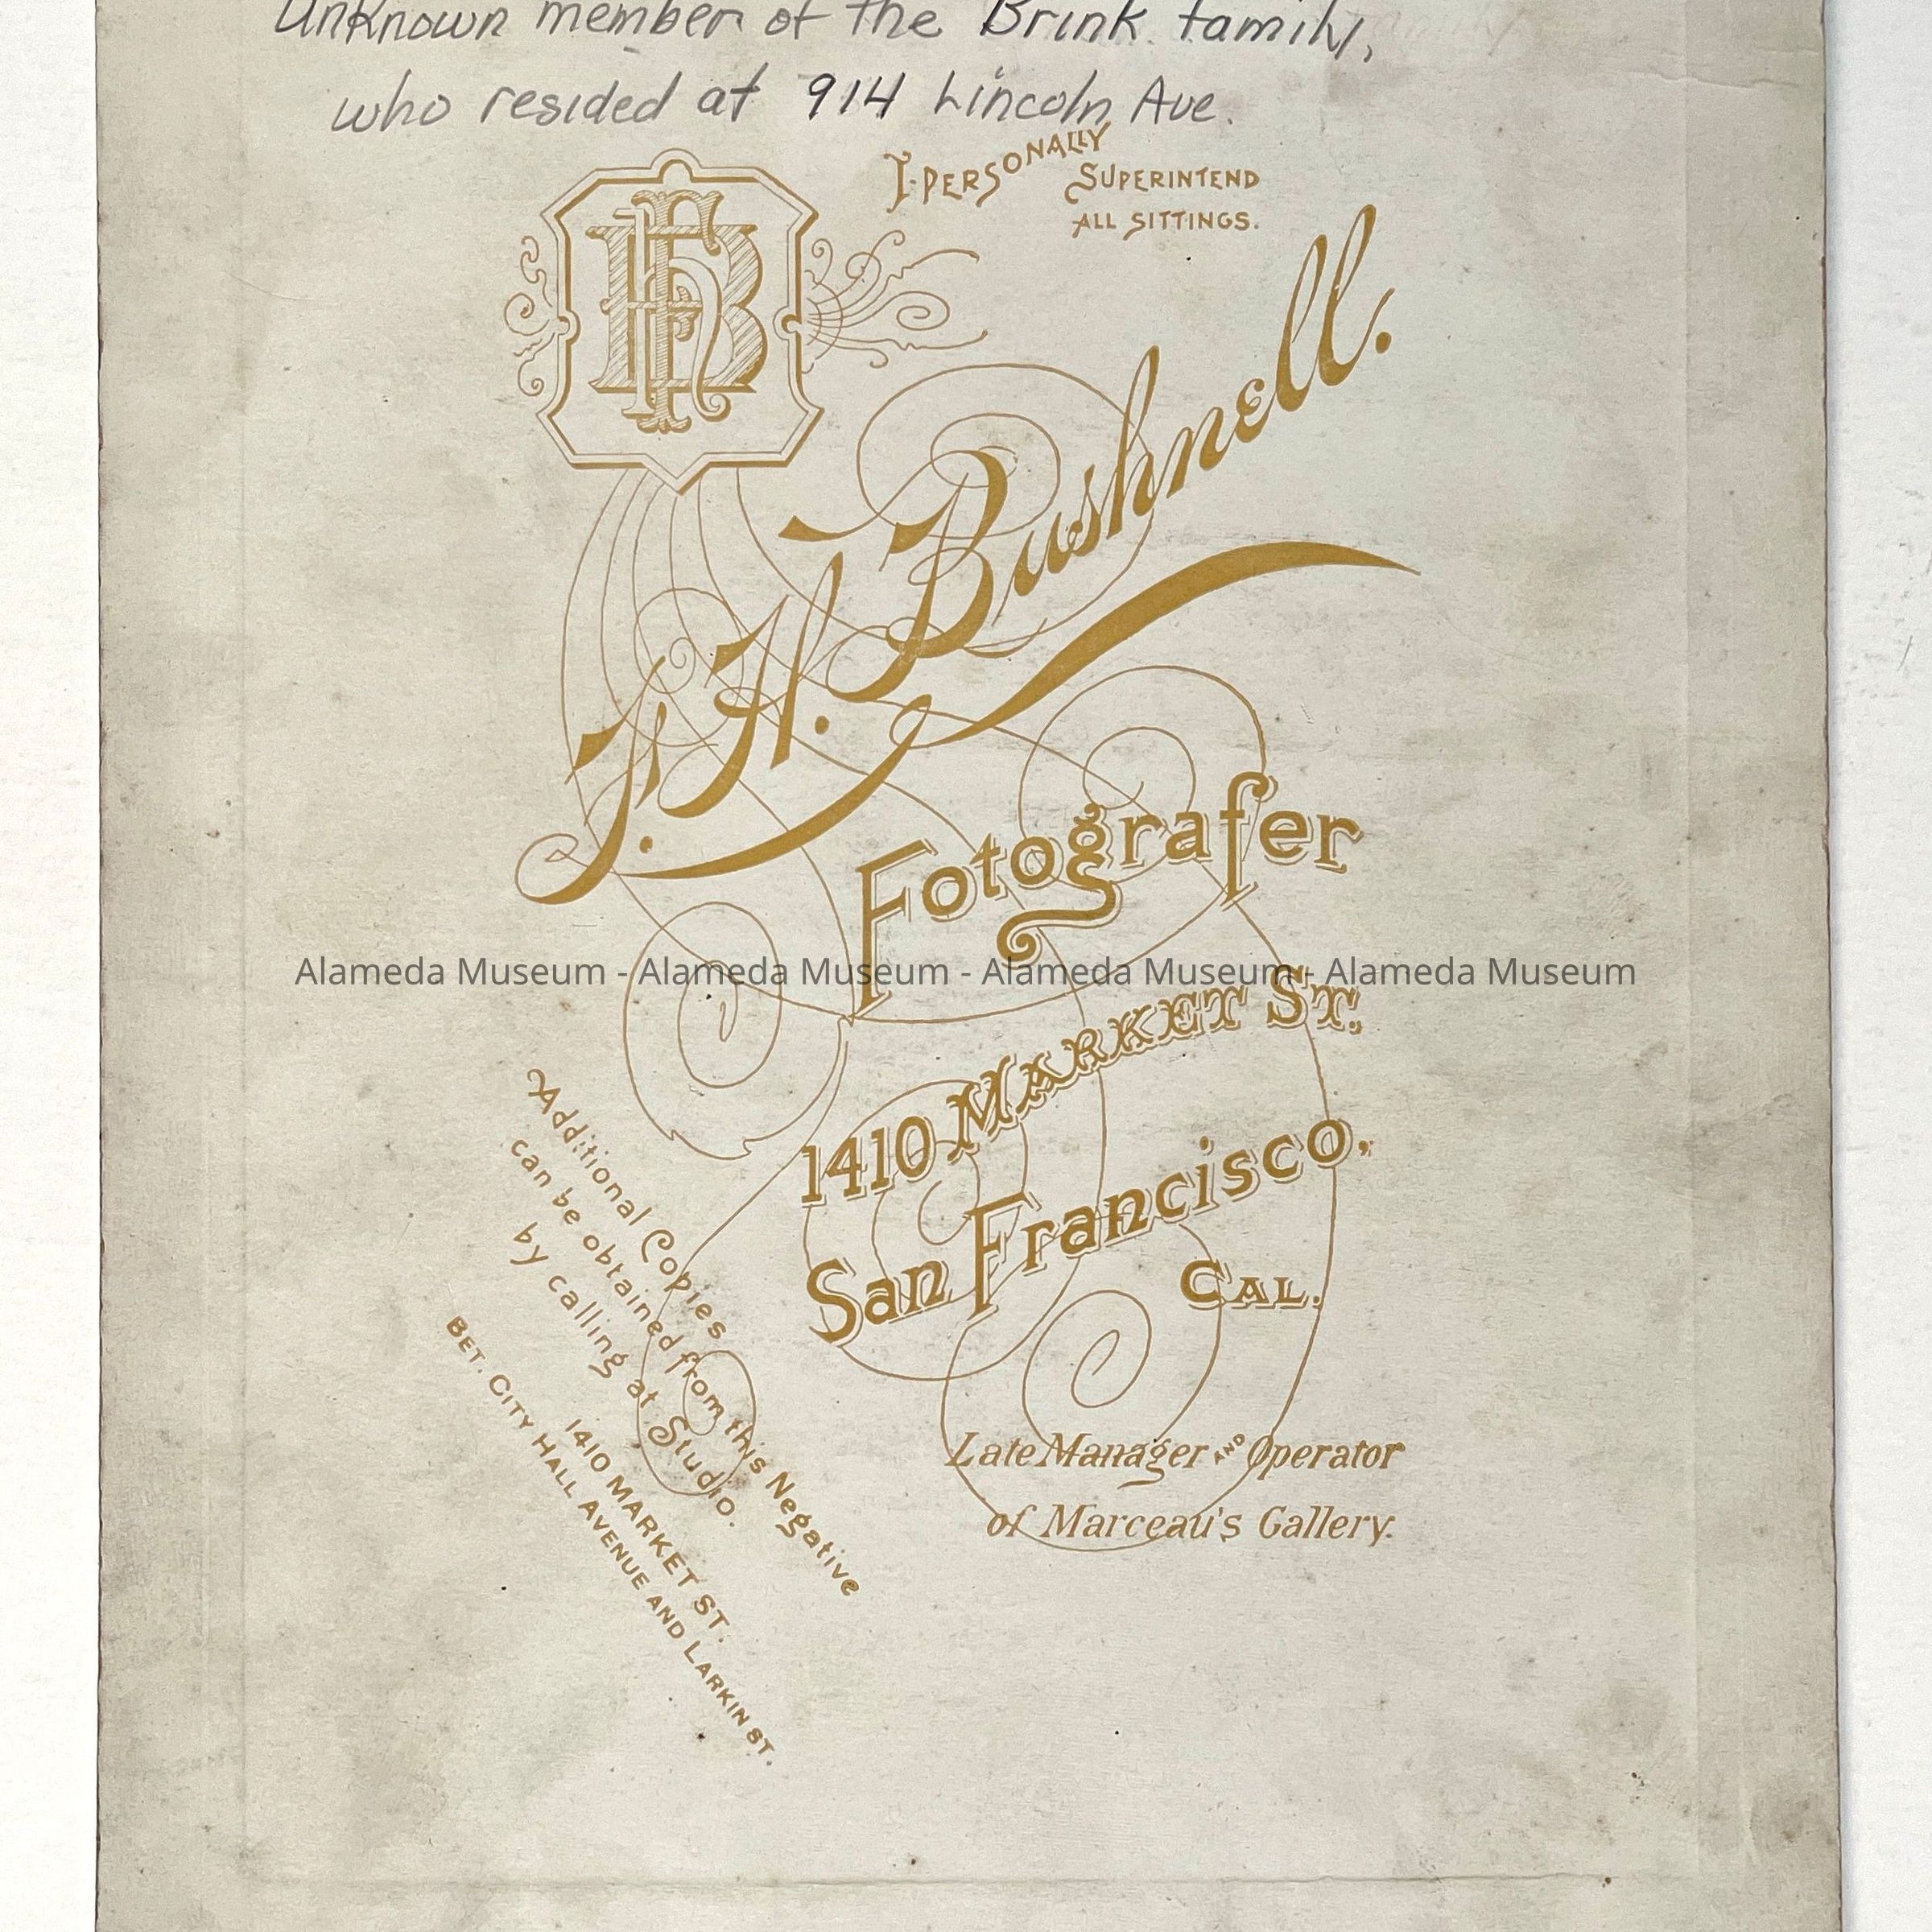 Unknown member of the Brink family,
who resided at 914 Lincoln Ave.
I PERSONALLY
SUPERINTEND
ALL SITTINGS.
FHB
F. H. Bushnell.
Fotografer
Alameda Museum - Alameda Museum - Alameda Museum - Alameda Museum
1410 MARKET ST.
San Francisco,
CAL.
Additional Copies
can be obtained from this Negative
by calling at Studio.
1410 MARKET ST.
BET. CITY HALL AVENUE AND LARKIN ST.
Late Manager AND Operator
of Marceau's Gallery.